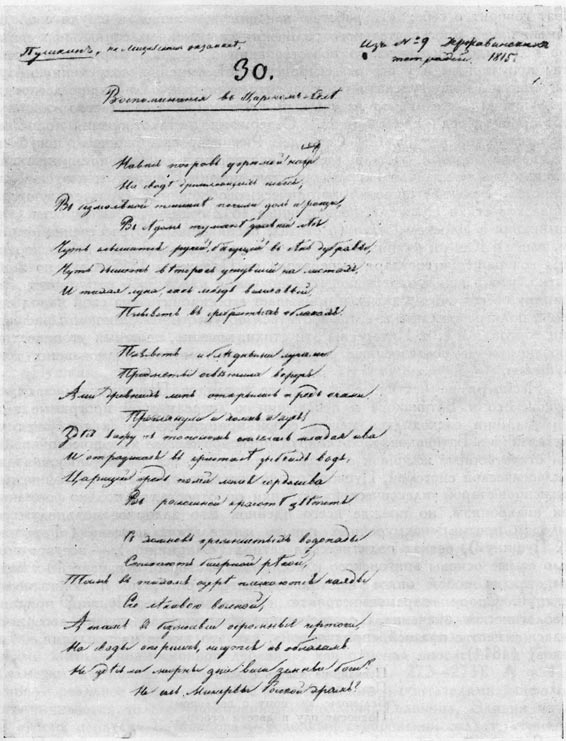 Пушкинъ, не Лицейская
Изъ № 9 Державинской
тетради. 1815.
30.
Воспоминанія въ Царскомъ-Селѣ
Нависъ покровъ угрюмой нощи
На сводѣ дремлющихъ небесъ,
Въ безмолвной тишинѣ почили долъ и рощи,
Въ сѣдомъ туманѣ дальній лѣсъ
Чуть слышится ручей, бѣгущій въ сѣнь дубравы,
Чуть дышетъ вѣтерокъ уснувшій на листахъ,
И тихая луна, какъ лебедь величавый,
Плыветъ въ сребристыхъ облакахъ.
Плыветъ и блѣдными лучами
Предметы освѣтила вокругъ
Аллеи древнихъ липъ открылись предъ очами
Проглянули и холмъ и лугъ;
Здѣсь вижу съ тополомъ сплелась младая ива
И отразилась въ кристалѣ зыбкихъ водъ,
Царицей средь полей лилея горделива
Въ роскошной красотѣ цвѣтетъ
Съ холмовъ кремнистыхъ водопады
Стекаютъ бисерной рѣкой,
Тамъ въ тихомъ озерѣ плескаются наяды
Его лѣнивою волной,
А тамъ въ безмолвіи огромные чертоги
На своды опершись, несутся къ облакамъ
Не здѣсь ли мирны дни вели земные боги?
Не се ль Минервы Росской храмъ?